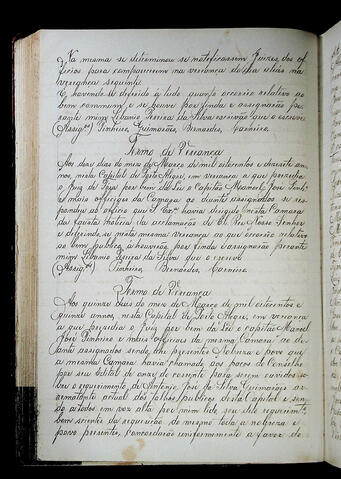 Na mesma se determinou se notificassem Juizes dos of
ficios para comparecerem na vereança do dia
vereança seguinte.
E havendo-se deferido á tudo quanto occorreo relativo ao
bem commum, e se houve por finda e assignarão pe
rante mim Silverio Pereira da Silva escrivão que o escrevi
Assig.os Pinheiro, Guimarães, Bernardes, Carneiro.
Termo de Vereança
Aos dous dias do mez de Março de mil oitocentos e quinze an
nos, nesta Capital de Porto Alegre, em vereança a que presidio
o Juiz de Fóra por bem da Lei o Capitão Manoel José Pinh.
e mais officiaes da Camara ao diante assignados se res
pondeu ao officio que S. Ex.a havia dirigido á esta Camara
da fausta noticia da acclamação de El Rei Nosso Senhor
e deferindo-se nesta mesma vereança ao que occorreo relativo
ao bem publico a houverão por finda e assignarão perante
mim Silverio Pereira da Silva que o escrevi
Assig.os Pinheiro Bernardes, Carneiro.
Termo de Vereança
Aos quinze dias do mez de Março de mil oitocentos e
quinze annos, nesta Capital de Porto Alegre, em vereanç
a que presidio o Juiz por bem da Lei o capitão Manoel
José Pinheiro e mais officiaes da mesma Camara ao di
ante assignados sendo ahi presentes Nobreza e povo que
a mesma Camara havia chamado aos paços do Concelho
por seu Edital de onze do corrente para serem ouvidos so
bre o requerimento de Antonio José da Silva Guimarães ar
rematante actual dos talhos publicos desta Capital e sen
do a todos em voz alta por mim lido seu dito requerim.to
bem scientes da requisição do mesmo toda a nobreza e
povo presentes, concordarão uniformemente a favor do